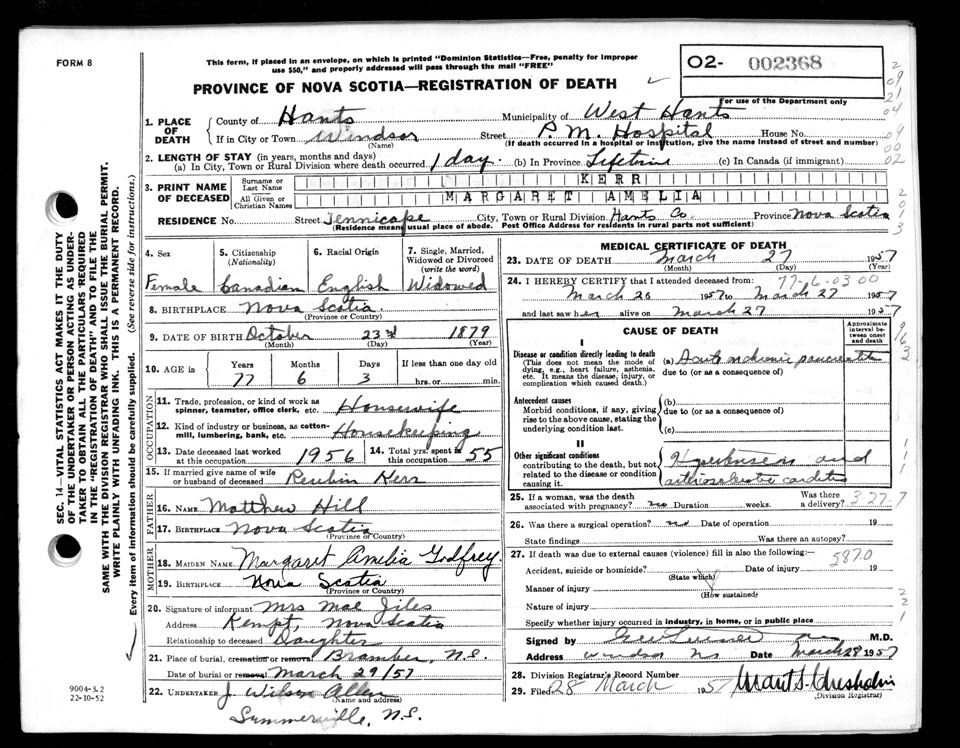 FORM 8
This form, if placed in an envelope, on which is printed "Dominion Statistics—Free, penalty for improper
use $50," and properly addressed will pass through the mail "FREE"
PROVINCE OF NOVA SCOTIA—REGISTRATION OF DEATH
O2- 002368
For use of the Department only
1. PLACE OF DEATH
County of Hants Municipality of West Hants
If in City or Town Windsor Street P. M. Hospital House No.
(Name) (If death occurred in a hospital or institution, give the name instead of street and number)
2. LENGTH OF STAY (in years, months and days)
(a) In City, Town or Rural Division where death occurred 1 day. (b) In Province Lifetime (c) In Canada (if immigrant)
3. PRINT NAME OF DECEASED
Surname or Last Name KERR
All Given or Christian Names MARGARET AMELIA
RESIDENCE No. Street Tennicape City, Town or Rural Division Hants Co. Province Nova Scotia
(Residence means usual place of abode. Post Office Address for residents in rural parts not sufficient)
4. Sex Female
5. Citizenship (Nationality) Canadian
6. Racial Origin English
7. Single, Married, Widowed or Divorced (write the word) Widowed
8. BIRTHPLACE Nova Scotia
(Province or Country)
9. DATE OF BIRTH October 23rd 1879
(Month) (Day) (Year)
10. AGE in Years 77 Months 6 Days 3 If less than one day old hrs. or min.
OCCUPATION
11. Trade, profession, or kind of work as spinner, teamster, office clerk, etc. Housewife
12. Kind of industry or business, as cotton-mill, lumbering, bank, etc. Housekeeping
13. Date deceased last worked at this occupation 1956 14. Total yrs. spent in this occupation 55
15. If married give name of wife or husband of deceased Reubin Kerr
FATHER
16. NAME Matthew Hill
17. BIRTHPLACE Nova Scotia
(Province or Country)
MOTHER
18. MAIDEN NAME Margaret Amelia Godfrey
19. BIRTHPLACE Nova Scotia
(Province or Country)
20. Signature of informant Mrs Mae Jiles
Address Kempt, Nova Scotia
Relationship to deceased Daughter
21. Place of burial, cremation or removal Bramber, N.S.
Date of burial or removal March 29/57
22. UNDERTAKER J. Wilson Allen
(Name and address)
Summerville, N.S.
MEDICAL CERTIFICATE OF DEATH
23. DATE OF DEATH March 27 1957
(Month) (Day) (Year)
24. I HEREBY CERTIFY that I attended deceased from: 77-6.03 00
March 26 1957 to March 27 1957
and last saw her alive on March 27 1957
CAUSE OF DEATH
Approximate interval between onset and death
I
Disease or condition directly leading to death
(This does not mean the mode of dying, e.g., heart failure, asthenia, etc. It means the disease, injury, or complication which caused death.)
(a)
due to (or as a consequence of)
Antecedent causes
Morbid conditions, if any, giving rise to the above cause, stating the underlying condition last.
(b)
due to (or as a consequence of)
(c)
II
Other significant conditions
contributing to the death, but not related to the disease or condition causing it.
and
25. If a woman, was the death associated with pregnancy? no Duration weeks. Was there a delivery? 3-27-7
26. Was there a surgical operation? no Date of operation 19
State findings Was there an autopsy?
27. If death was due to external causes (violence) fill in also the following: 5870
Accident, suicide or homicide? Date of injury 19
(State which)
Manner of injury
(How sustained)
Nature of injury
Specify whether injury occurred in industry, in home, or in public place
Signed by M.D.
Address Windsor NS Date March 28 1957
28. Division Registrar's Record No.
29. Filed 28 March 1957
(Division Registrar)
SEC. 14—VITAL STATISTICS ACT MAKES IT THE DUTY
OF THE UNDERTAKER OR PERSON ACTING AS UNDERTAKER
TO OBTAIN ALL THE PARTICULARS REQUIRED
IN THE "REGISTRATION OF DEATH" AND TO FILE THE
SAME WITH THE DIVISION REGISTRAR WHO SHALL ISSUE THE BURIAL PERMIT.
WRITE PLAINLY WITH UNFADING INK. THIS IS A PERMANENT RECORD.
Every item of information should be carefully supplied. (See reverse side for instructions.)
9004-3.2
22-10-52